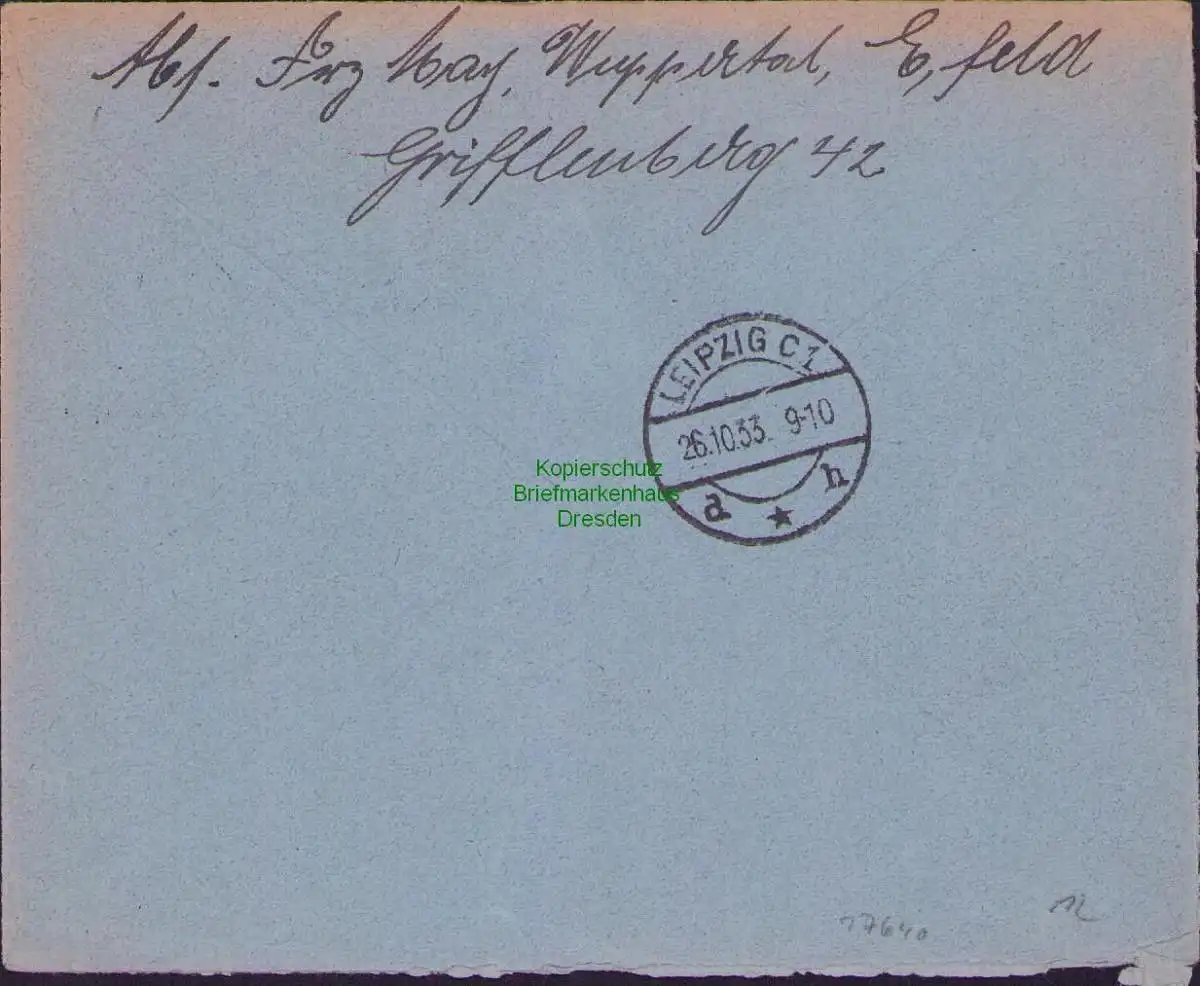 Abs. Frz May, Wuppertal, E, feld
Grifflenberg 42
LEIPZIG C1
26.10.33. 9-10
a ★ h
Kopierschutz
Briefmarkenhaus
Dresden
17640
12